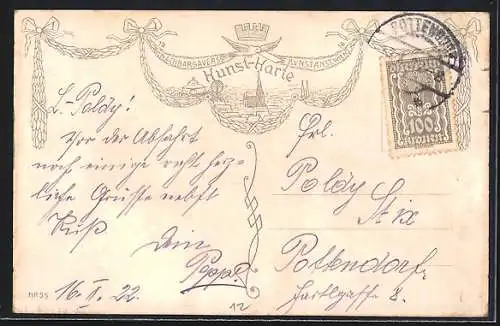 Kunst-Karte
POTTENDORF
100
L. Poldy!
Vor der Abfahrt
noch einige recht herz-
liche Grüsse nebst
Kuß
Dein
Pepi
16. II. 22.
Nr 35
12
Frl.
Poldy
Stix
Pottendorf
Hartlgasse 8.